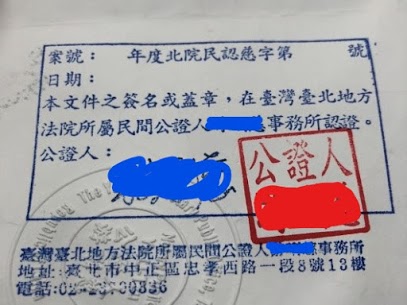 案號： 年度北院民認慈字第 號
日期：
本文件之簽名或蓋章，在臺灣臺北地方
法院所屬民間公證人事務所認證。
公證人：
公證人
臺灣臺北地方法院所屬民間公證人事務所
地址:臺北市中正區忠孝西路一段8號13樓
電話: